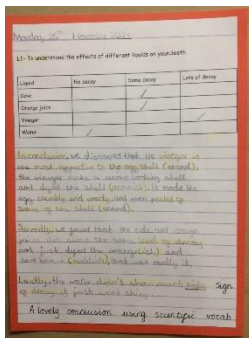 Monday, 25th November
LI:- To understand the effects of different liquids on your teeth.
Liquid No decay Some decay Lots of decay
Coke ✓
Orange juice ✓
Vinegar ✓
Water ✓
In conclusion, we discovered that the vinegar is
the most aggressive to the egg shell (enamel),
the vinegar made a
and dyed the shell it made the
egg crumbly and and even peeled of
some of the shell (enamel).
Secondly, we found that the coke and orange
juice did about the same level of decay
and just dyed the
that was really it.
Lastly, the water didn't show much sign
of decay it just went shiny.
A lovely conclusion using scientific vocab